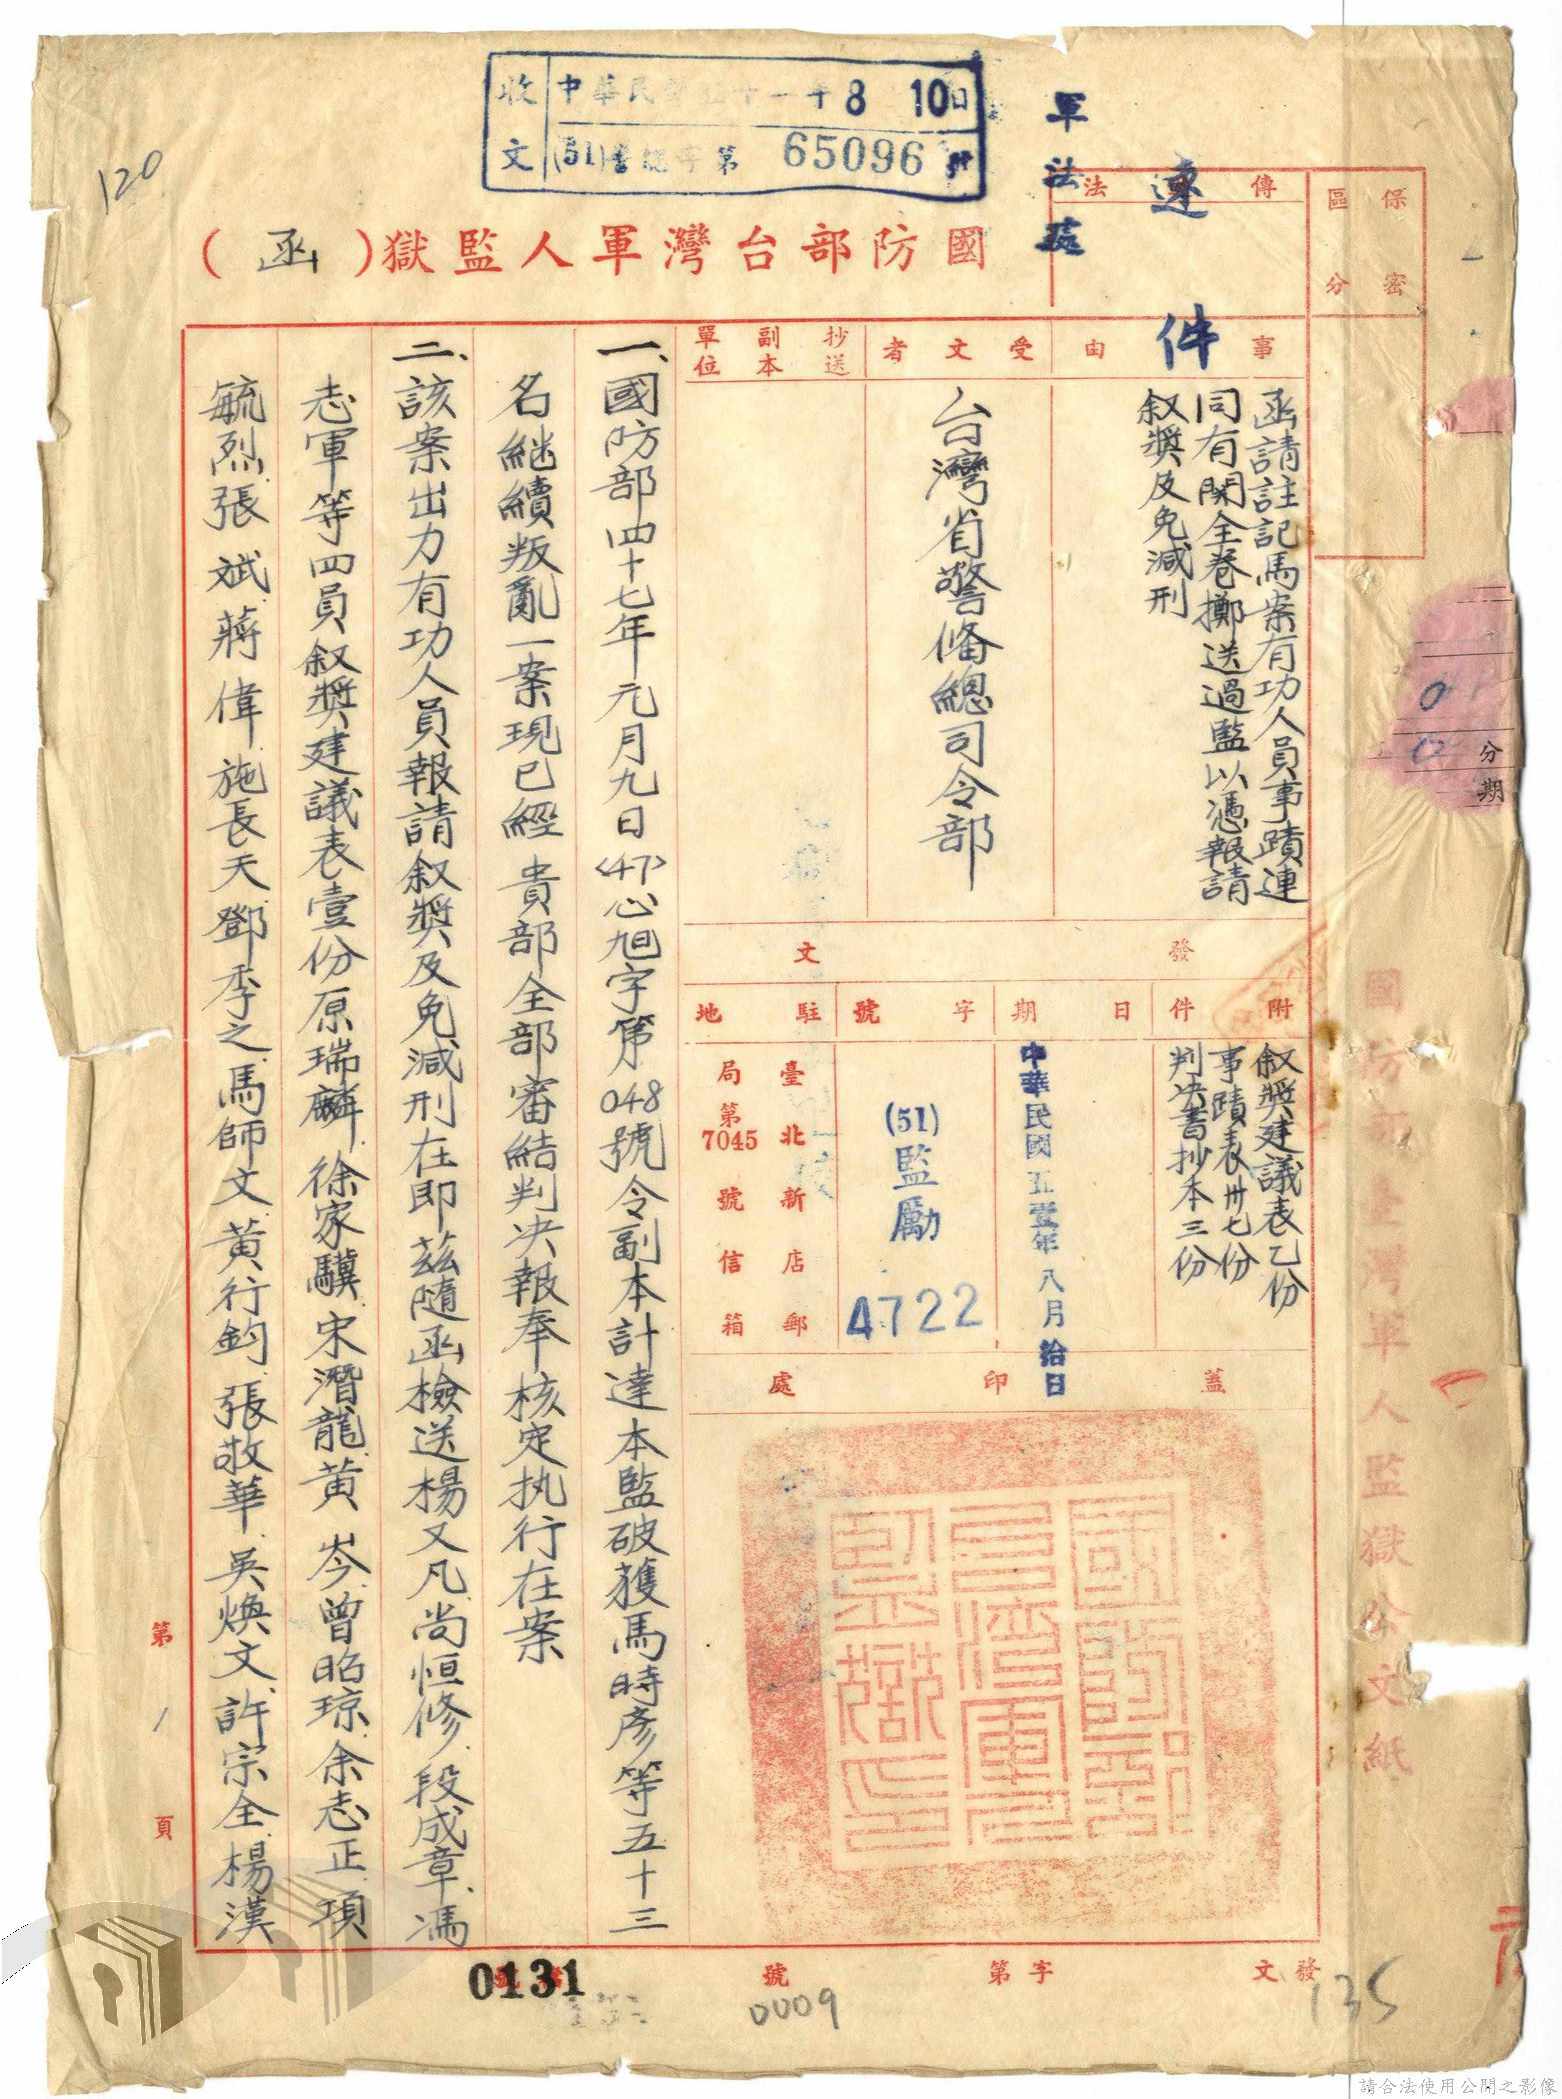 收文
中華民國五十一年8 10日
(51)警總字第 65096 號
軍法處
速件
120
保密區分
傳法
國防部台灣軍人監獄(函)
事由
函請註記馬案有功人員事蹟連
同有関全卷擲送過監以憑報請
叙獎及免減刑
受文者
台灣省警備總司令部
抄送副本單位
發文
附件
叙獎建議表乙份
事蹟表卅七份
判决書抄本三份
日期
中華民國五壹年八月拾日
字號
(51)監勵
4722
駐地
臺北新店郵
局第7045號信箱
蓋印處
國防部台灣軍人監獄印
一、國防部四十七年元月九日<47>心旭字第048號令副本計達本監破獲馬時彦等五十三
名継續叛亂一案現已經 貴部全部審結判决報奉 核定执行在案
二、該案出力有功人員報請叙奬及免減刑在即茲隨函檢送楊又凡尚恒修、段成章、馮
志軍等四員叙奬建議表壹份原瑞麟、徐家驥、宋潛龍、黄岑、曾昭琼、余志正、項
毓烈、張斌、蔣偉、施長天、鄧季之、馬師文、黄行鈞、張敬華、吳煥文、許宗全、楊漢
第1頁
發文 字第 號
0131
0009
135
國防部臺灣軍人監獄公文紙
分期
請合法使用公開之影像